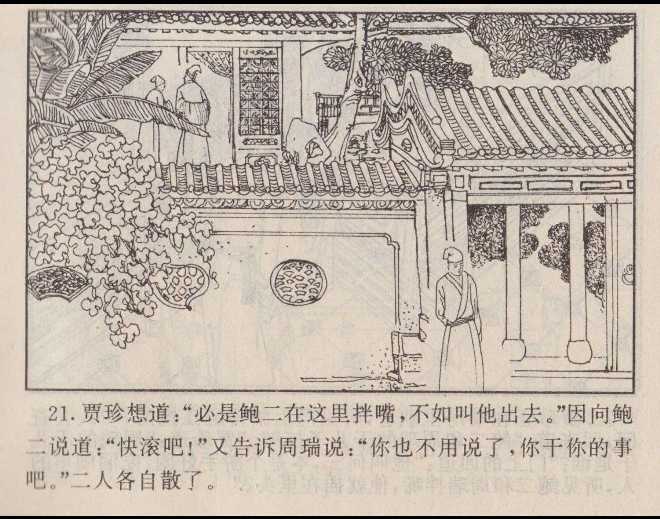 21. 贾珍想道：“必是鲍二在这里拌嘴，不如叫他出去。”因向鲍
二说道：“快滚吧！”又告诉周瑞说：“你也不用说了，你干你的事
吧。”二人各自散了。